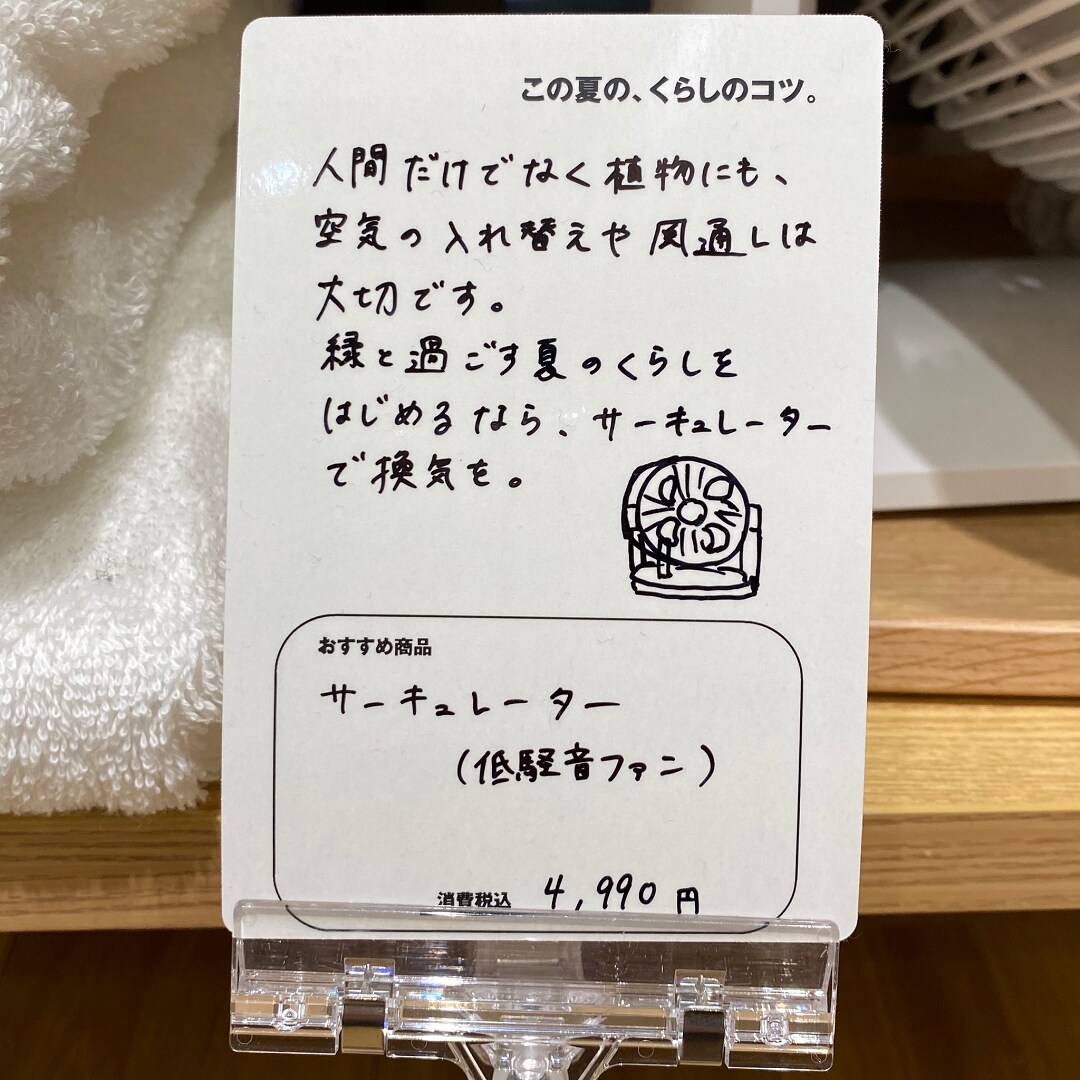 この夏の、くらしのコツ。
人間だけでなく植物にも、
空気の入れ替えや風通しは
大切です。
緑と過ごす夏のくらしを
はじめるなら、サーキュレーター
で換気を。
おすすめ商品
サーキュレーター
(低騒音ファン)
消費税込 4,990円